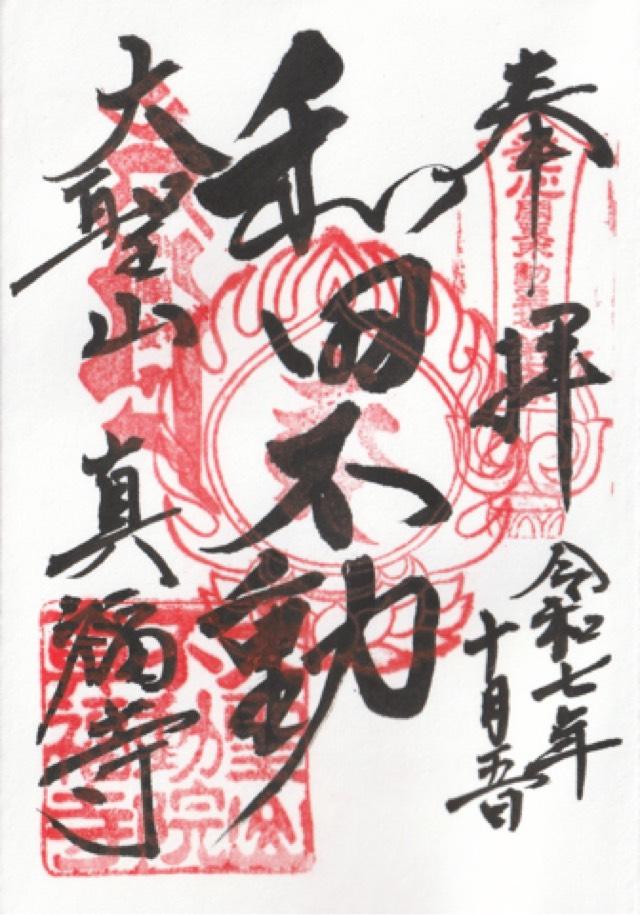 奉拝
令和七年
十月五日
和田不動
大聖山 真福寺